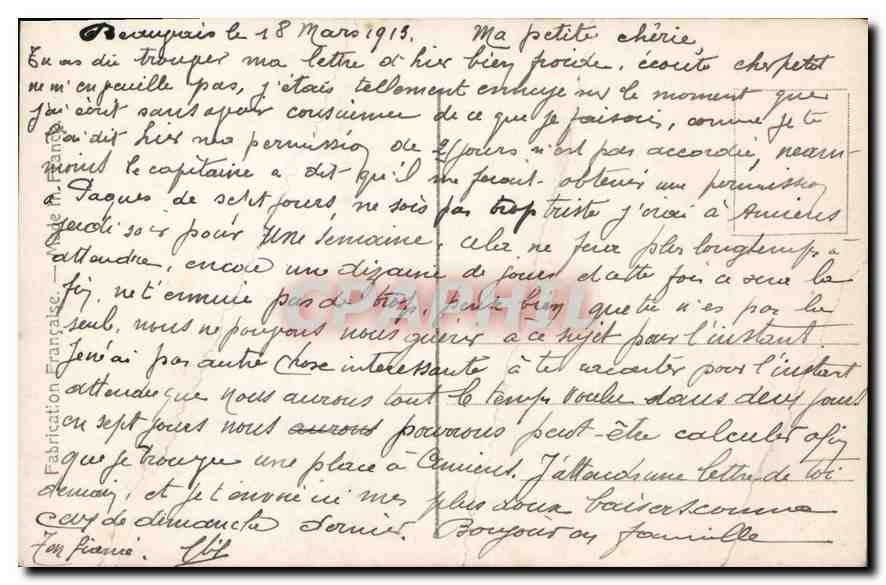 le 18 Mars 1913. Ma petite chérie,
Tu as dû trouver ma lettre d'hier bien froide, écoute cher petit
ne m'en veuille pas, j'étais tellement ennuyé sur le moment que
j'ai écrit sans avoir conscience de ce que je faisais, comme je te
l'ai dit hier ma permission de 2 jours n'est pas accordée, néan-
moins le capitaine a dit qu'il me ferait obtenir une permission
à Paques de sept jours, ne sois pas trop triste j'irai à Amiens
jeudi soir pour une semaine, cela ne fera plus longtemps à
attendre, encore une dizaine de jours et cette fois ce sera la
fin, ne t'ennuie pas de trop, bien que tu n'es pas la
seule, nous ne pouvons nous à ce sujet pour l'instant.
Je n'ai pas autre chose intéressante à te raconter pour l'instant
attendu que nous aurons tout le temps voulu dans deux jours
en sept jours nous aurons pourrons peut-être calculer afin
que je trouve une place à Amiens. J'attends une lettre de toi
demain, et je t'envoie ici mes plus doux baisers comme
ceux de dimanche dernier. Bonjour en famille
Ton fiancé.
Fabrication Française. — Made in France
CPARHIL